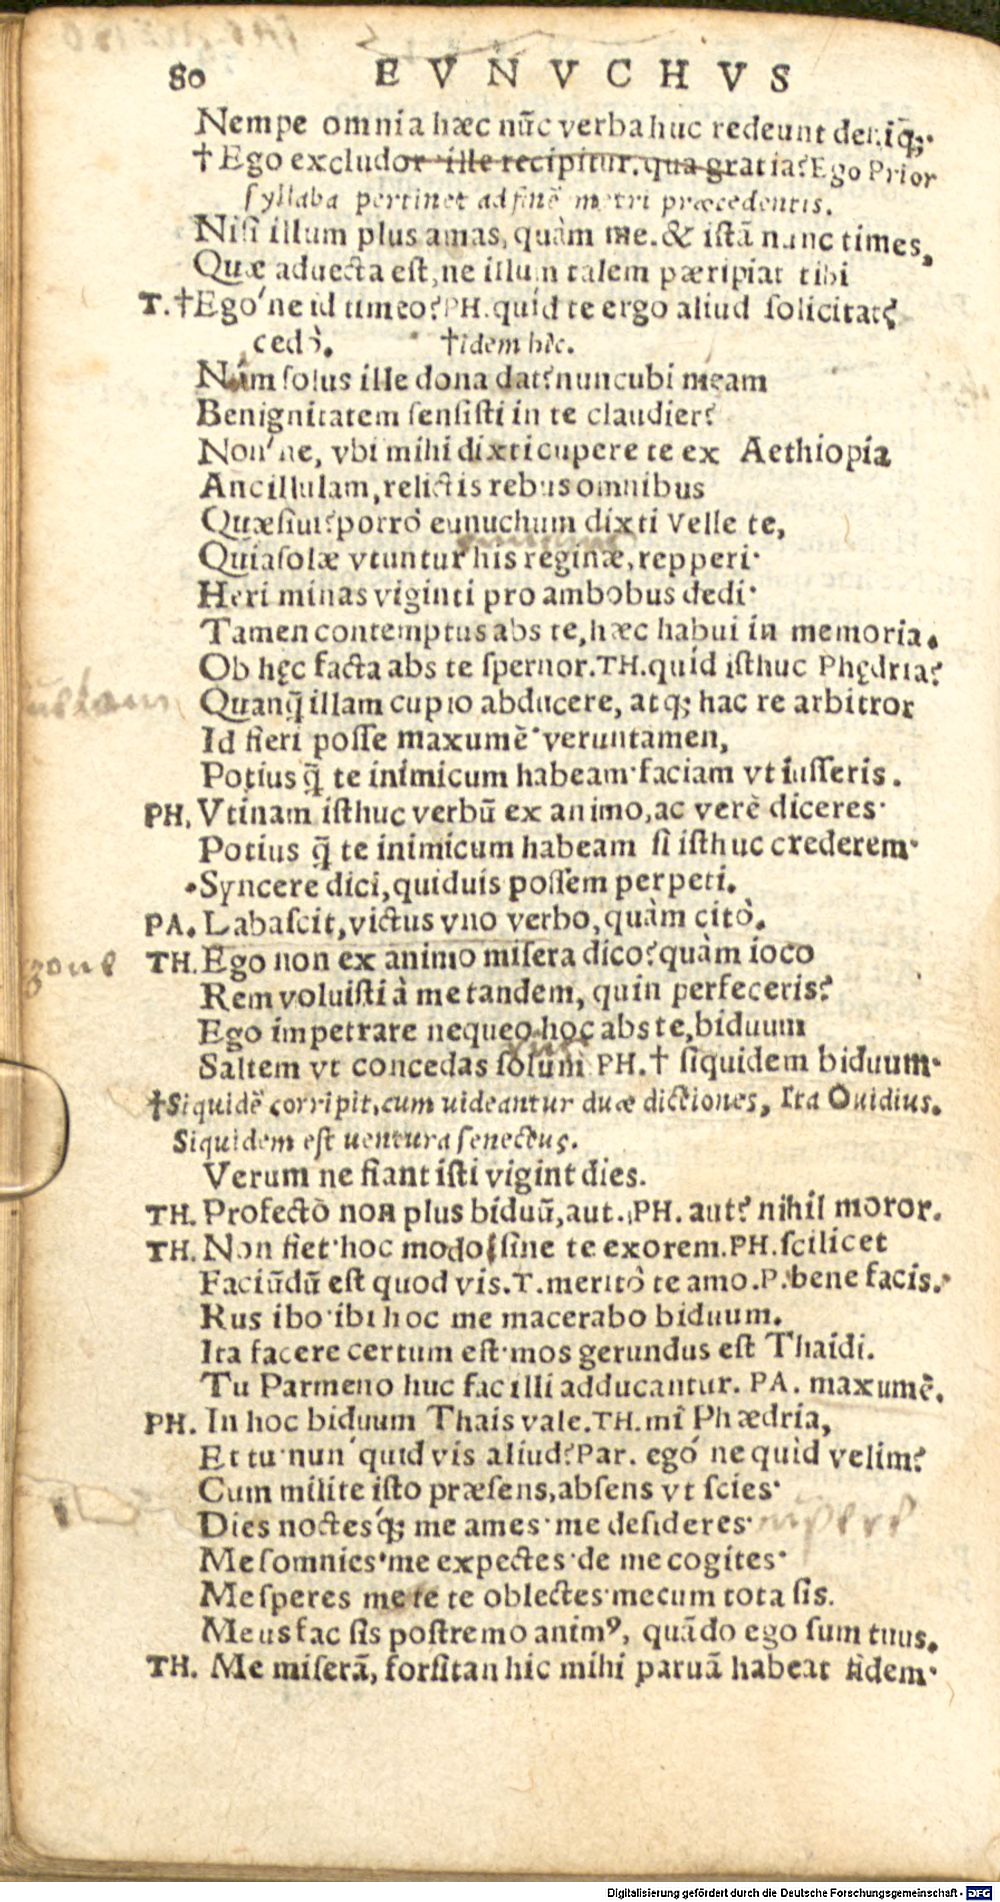 80 EVNVCHVS
Nempe omnia hæc nūc verba huc redeunt deniq̄;·
†Ego excludor·ille recipitur. qua gratia? Ego Prior
syllaba pertinet ad finē metri præcedentis.
Nisi illum plus amas, quàm me. & istā nunc times,
Quæ aduecta est, ne illum talem pæripiat tibi
T. †Ego'ne id timeo? PH. quid te ergo aliud solicitat?
cedò. †idem hîc.
Nùm solus ille dona dat? nuncubi meam
Benignitatem sensisti in te claudier?
Non'ne, vbi mihi dixti cupere te ex Aethiopia
Ancillulam, relictis rebus omnibus
Quæsiui? porrò eunuchum dixti Velle te,
Quia solæ vtuntur his reginæ, repperi·
Heri minas viginti pro ambobus dedi·
Tamen contemptus abs te, hæc habui in memoria.
Ob hęc facta abs te spernor. TH. quid isthuc Phędria?
Quanq̄ illam cupio abducere, atq; hac re arbitror
Id fieri posse maxumè·veruntamen,
Potius q̄ te inimicum habeam·faciam vt iusseris.
PH. Vtinam isthuc verbū ex animo, ac verè diceres·
Potius q̄ te inimicum habeam si isthuc crederem·
Syncere dici, quiduis possem perpeti.
PA. Labascit, victus vno verbo, quàm citò.
TH. Ego non ex animo misera dico? quàm ioco
Rem voluisti à me tandem, quin perfeceris?
Ego impetrare nequeo hoc abs te, biduum
Saltem vt concedas solum PH. † siquidem biduum·
†Siquidē corripit, cum uideantur duæ dictiones, Ita Ouidius.
Siquidem est uentura senectus.
Verum ne fiant isti vigint dies.
TH. Profectò non plus biduū, aut. PH. aut? nihil moror.
TH. Non fiet·hoc modo sine te exorem. PH. scilicet
Faciūdū est quod vis. T. meritò te amo. P. bene facis.
Rus ibo·ibi hoc me macerabo biduum.
Ita facere certum est·mos gerundus est Thaidi.
Tu Parmeno huc fac illi adducantur. PA. maxumè.
PH. In hoc biduum Thais vale. TH. mi Phædria,
Et tu·nun'quid vis aliud? Par. egó ne quid velim?
Cum milite isto præsens, absens vt scies·
Dies noctesq́; me ames·me desideres·
Me somnies·me expectes·de me cogites·
Me speres me te te oblectes·mecum tota sis.
Meus fac sis postremo animꝰ, quādo ego sum tuus.
TH. Me miserā, forsitan hic mihi paruā habeat fidem·
Digitalisierung gefördert durch die Deutsche Forschungsgemeinschaft - DFG